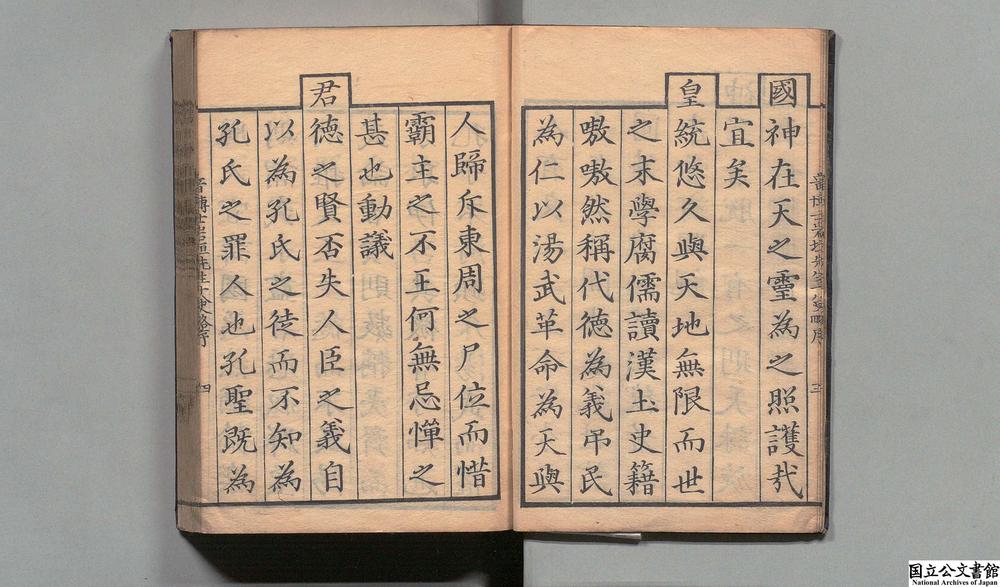 國神在天之靈為之照護哉
宜矣
皇統悠久與天地無限而世
之末學腐儒讀漢土史籍
嗷嗷然稱代德為義吊民
為仁以湯武革命為天與
三
人歸斥東周之尸位而惜
霸主之不王何無忌憚之
甚也動議
君德之賢否失人臣之義自
以為孔氏之徒而不知為
孔氏之罪人也孔聖既為
四
国立公文書館
National Archives of Japan